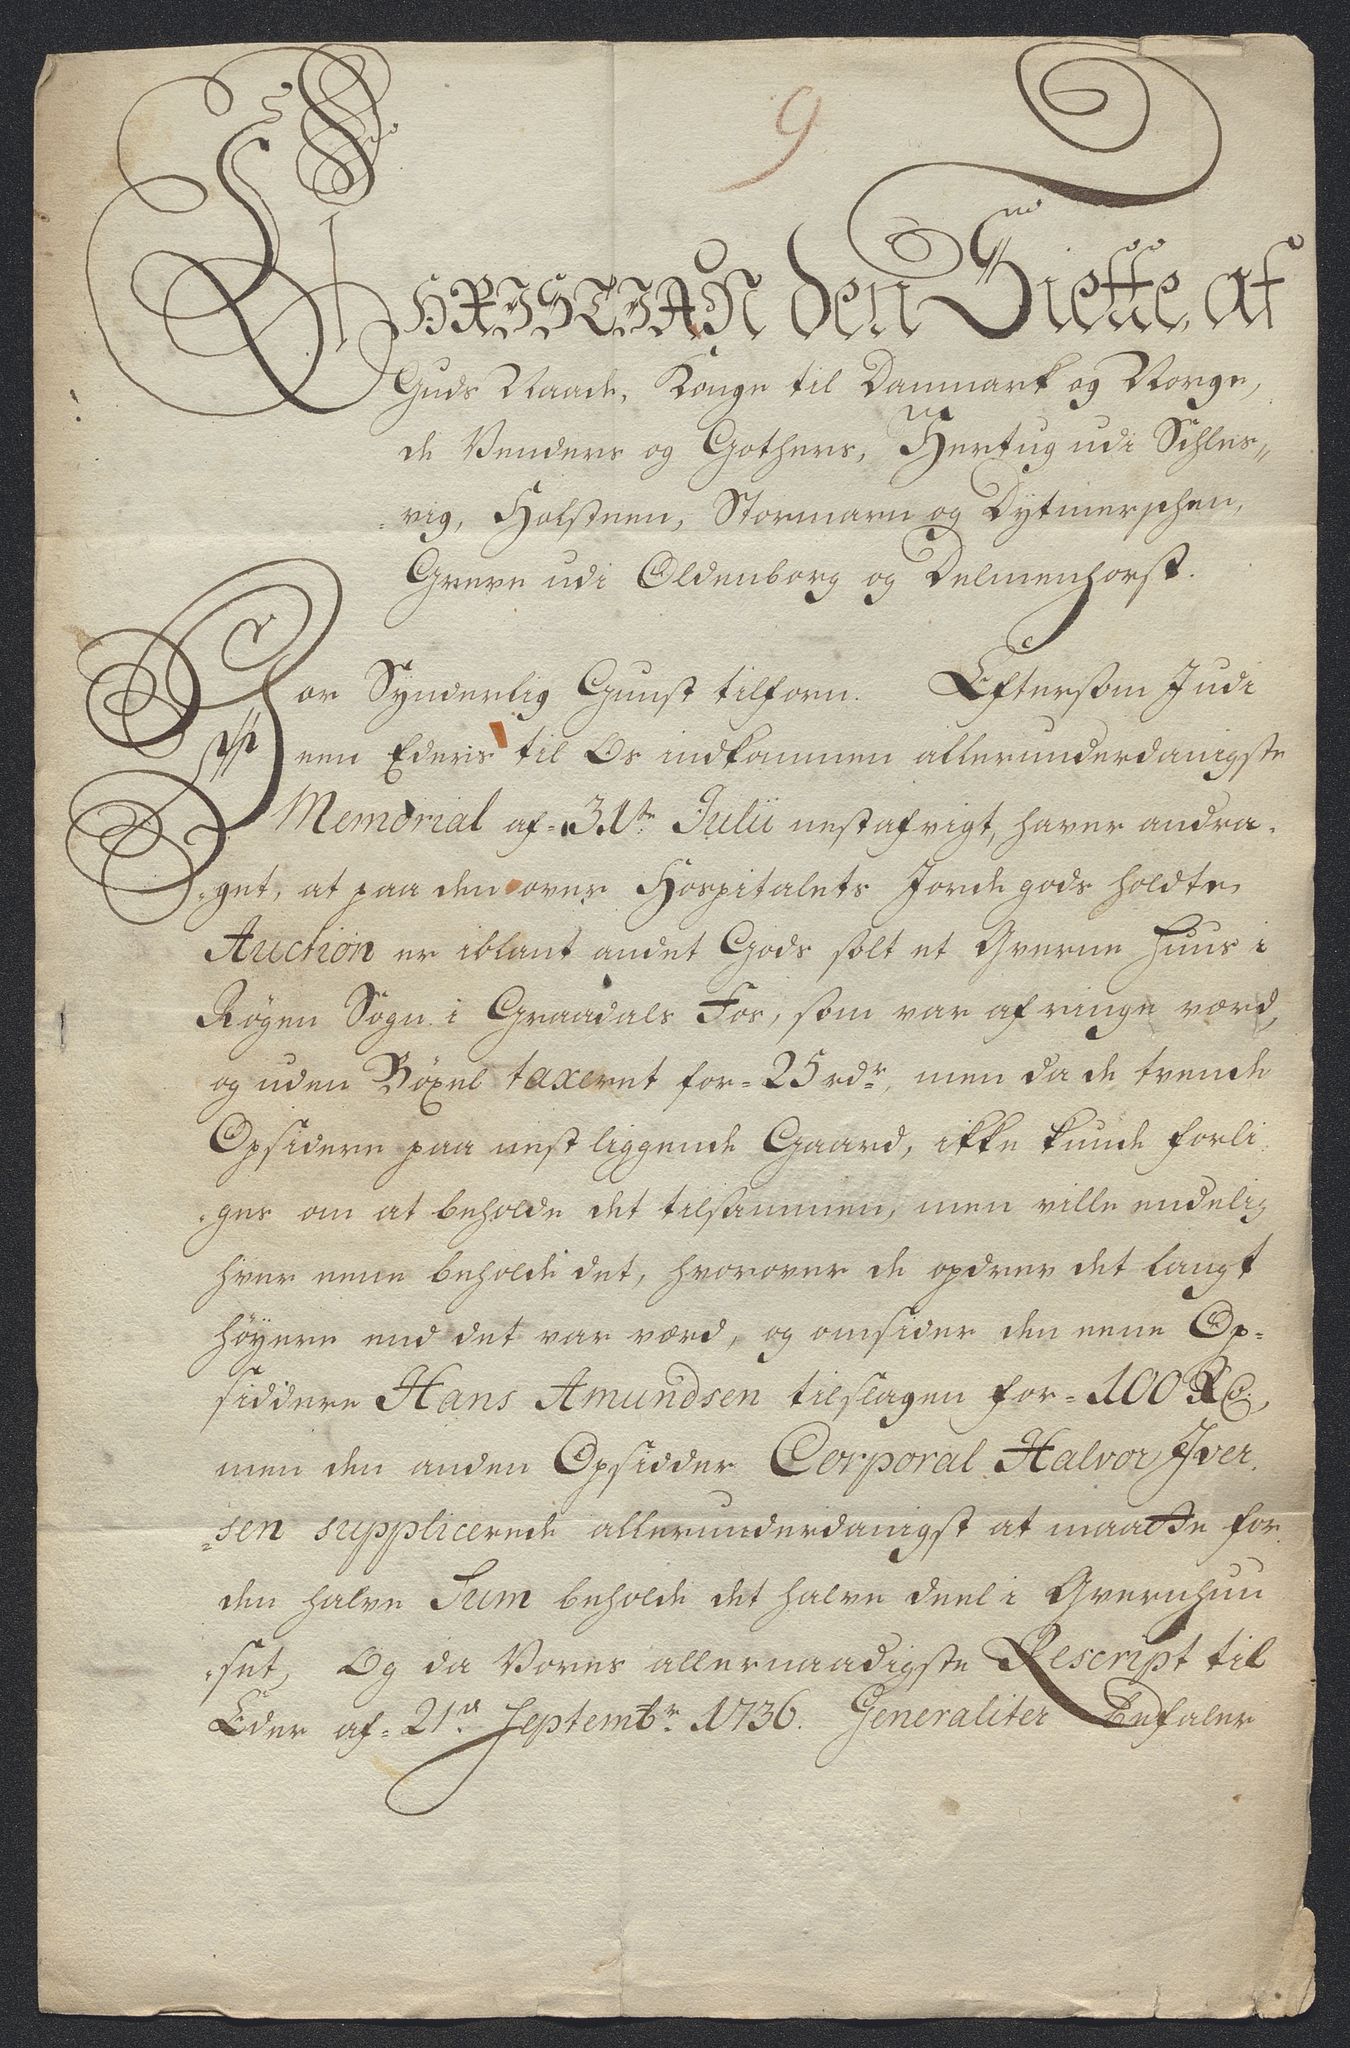 9
CHRISTIAN den Siette, af
Guds Naade, Konge til Danmark og Norge,
de Venders og Gothers, Hertug udi Schles„
„vig, Holsteen, Stormarn og Dytmerschen,
Greve udi Oldenborg og Delmenhorst.
Vor Synderlig Gunst tilforn. Eftersom I udi
een Eders til Os indkommen allerunderdanigste
Memorial af 31te Julii nestafvigt, haver andra-
-get, at paa den over Hospitalets Jordegods holdte
Auction er iblant andet Gods solt et Qverne Huus i
Røgen Sogn i Graadals Fos, som var af ringe værd,
og uden Bøxel taxeret for 25 rdr, men da de tvende
Opsidere paa nest liggende Gaard, ikke kunde forli-
-ges om at beholde det tilsammen, men ville endelig
hver eene beholde det, hvorover de opdrev det langt
høyere end det var værd, og omsider den eene Op-
siddere Hans Amundsen tilslagen for 100 Rd,
men den anden Opsidder Corporal Halvor Iver-
-sen supplicerede allerunderdanigst at maatte for
den halve Sum beholde det halve deel i Qvernhuu
-set, Og da Vores allernaadigste Rescript til
Eder af 21de Septembr 1736. Generaliter Befaler